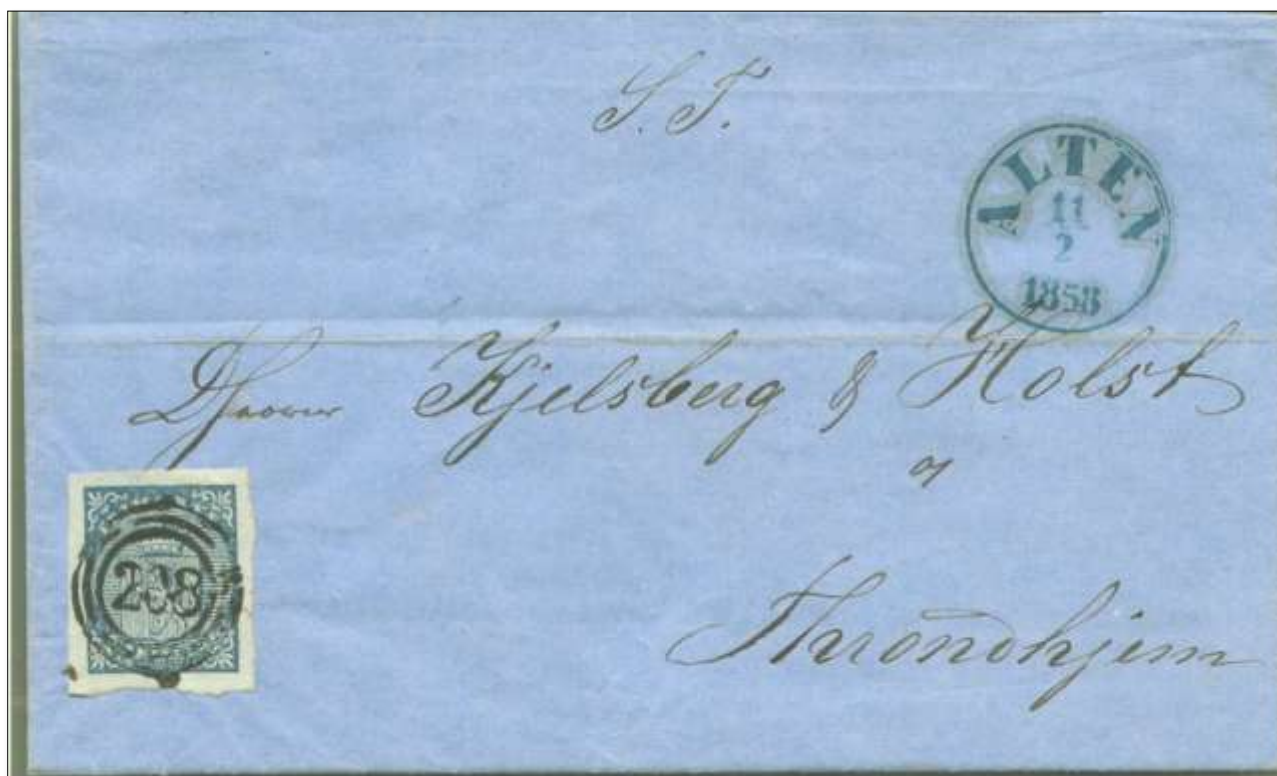 S. T.
ALTEN
11
2
1858
Kjelsberg & Holst
Throndhjem
208